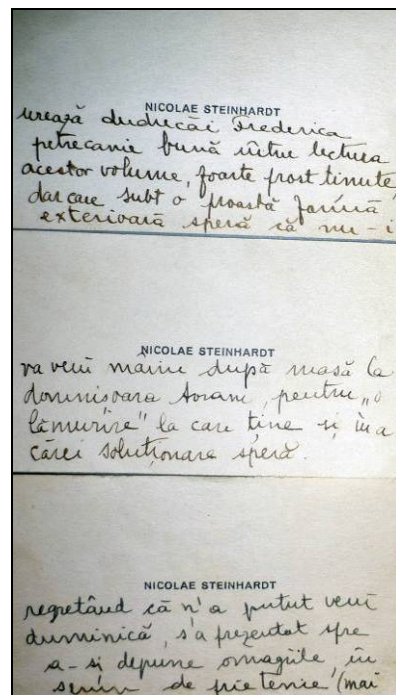 NICOLAE STEINHARDT
urează duducăi Frederica
petrecanie bună întru lectura
acestor volume, foarte prost ținute,
dar care subt o proastă formă
exterioară speră că nu-i
NICOLAE STEINHARDT
va veni mâine după masă la
domnișoara Avram, pentru „o
lămurire" la care ține și în a
cărei soluționare speră.
NICOLAE STEINHARDT
regretând că n'a putut veni
duminică, s'a prezentat spre
a-si depune omagiile, în
semn de prietenie (mai